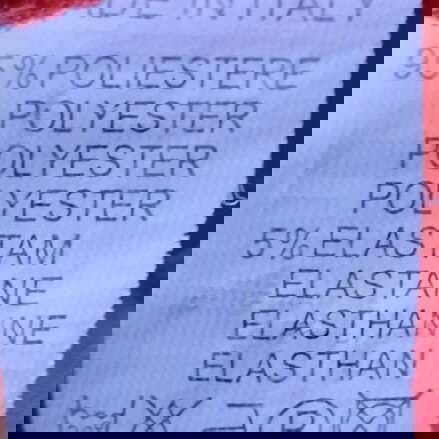 MADE IN ITALY
95% POLIESTERE
POLYESTER
POLYESTER
POLYESTER
5% ELASTAM
ELASTANE
ELASTHANNE
ELASTHAN